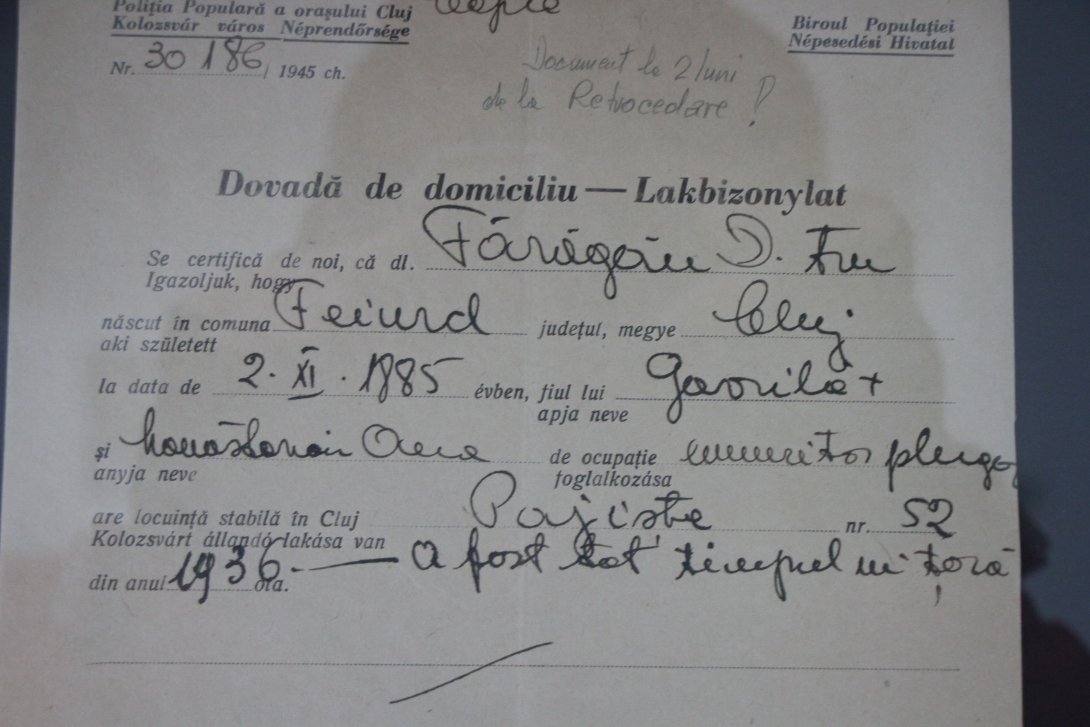 Poliția Populară a orașului Cluj
Kolozsvár város Néprendőrsége
Biroul Populației
Népesedési Hivatal
Nr. 30186, 1945 ch.
Document la 2 luni
de la Retrocedare !
Dovadă de domiciliu — Lakbizonylat
Se certifică de noi, că dl. Fărăgău D.
Igazoljuk, hogy
născut în comuna Feiurd județul, megye Cluj
aki született
la data de 2. XI. 1885 évben, fiul lui Gavrilă +
apja neve
și Ana de ocupație muncitor
anyja neve foglalkozása
are locuință stabilă în Cluj Pajiste nr. 52
Kolozsvárt állandó lakása van
din anul 1936. — a fost tot timpul în țară
óta.